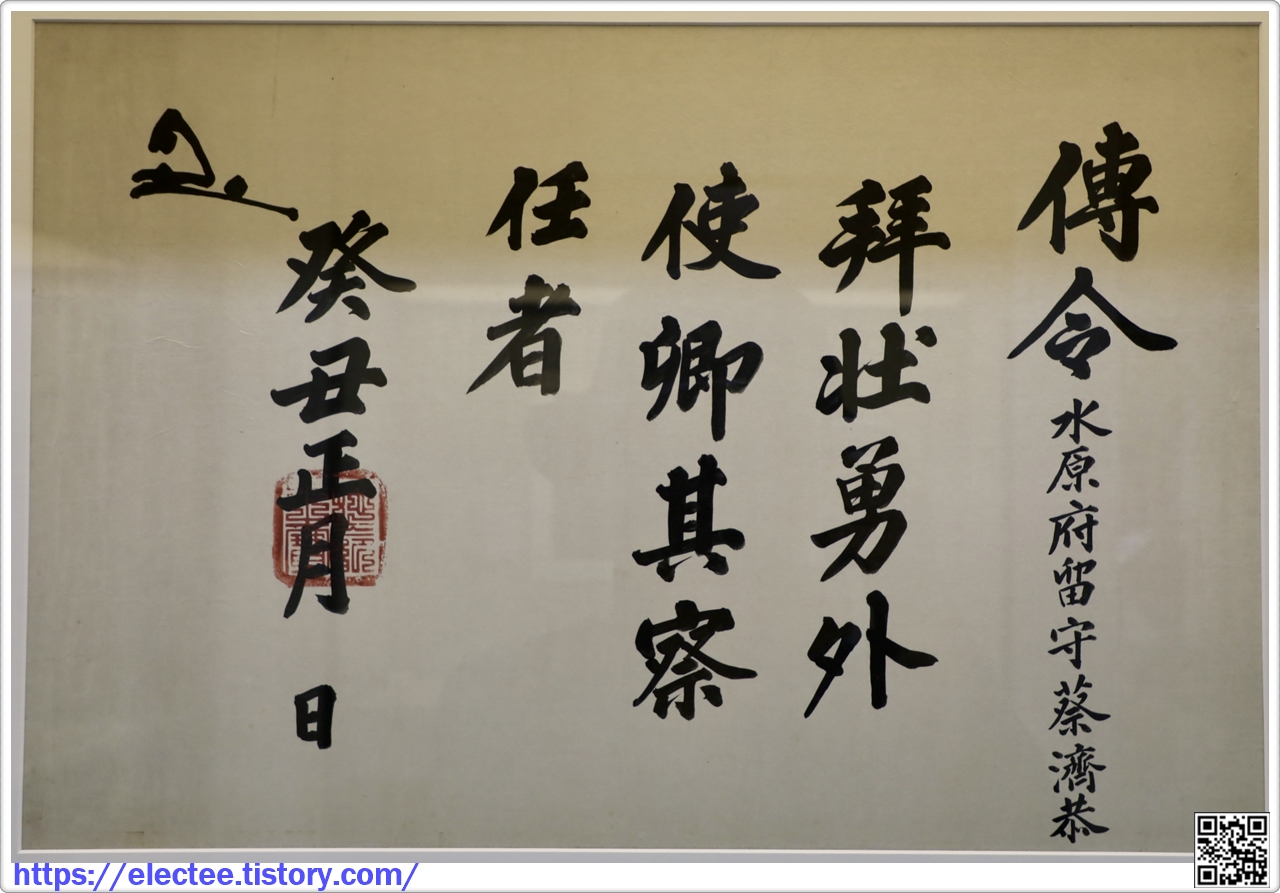 傳令 水原府留守蔡濟恭
拜壯勇外
使卿其察
任者
癸丑正月 日
https://electee.tistory.com/